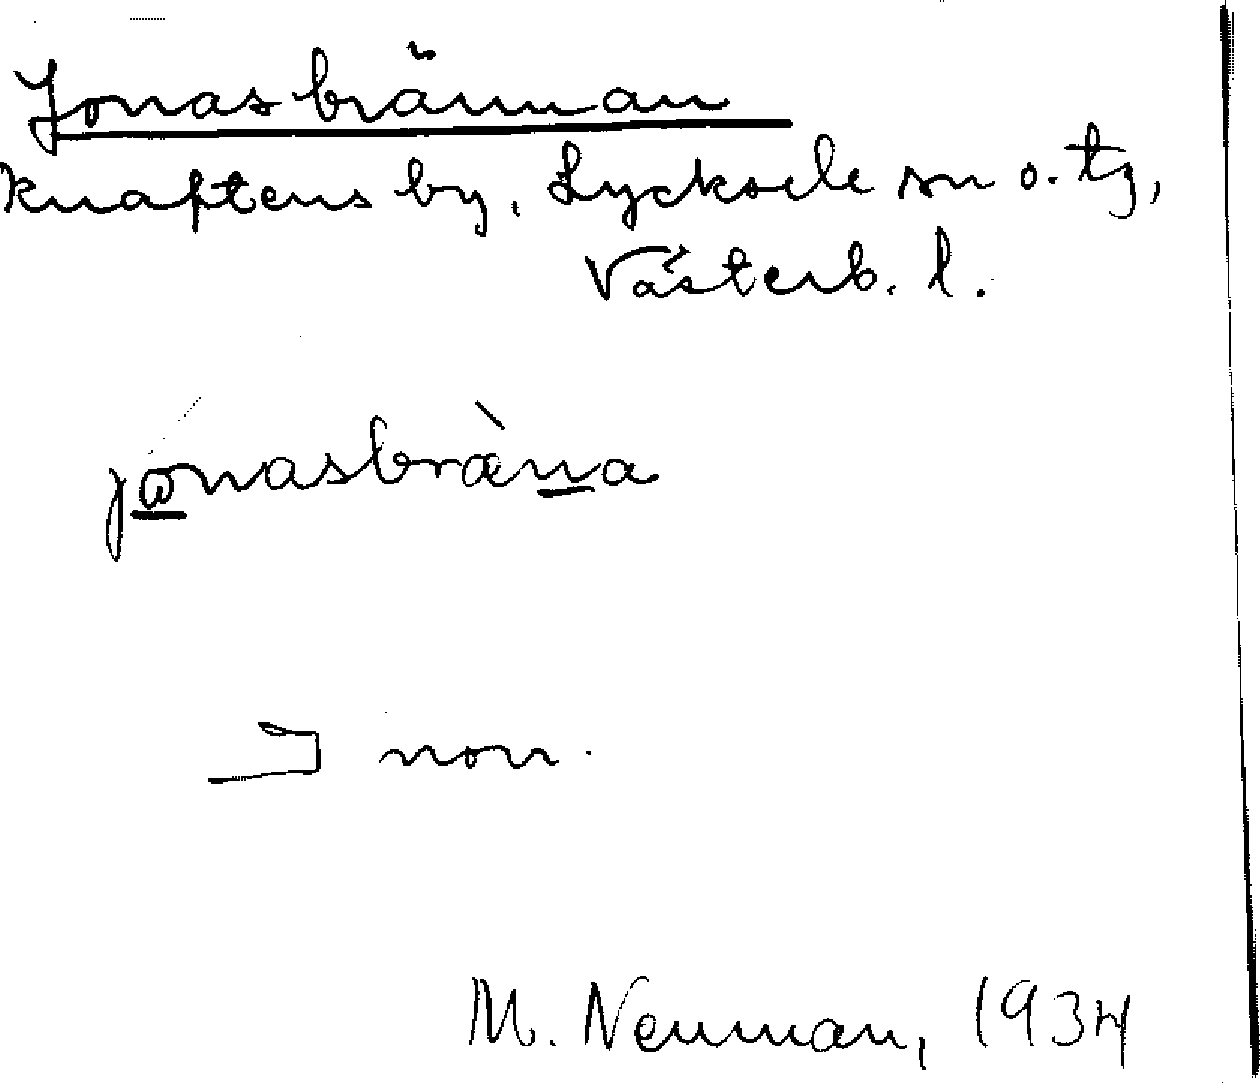 Jonasbrännan
Knaftens by, Lycksele sn o. tg,
Västerb. l.
jonasbræna
non.
M. Neuman, 1934